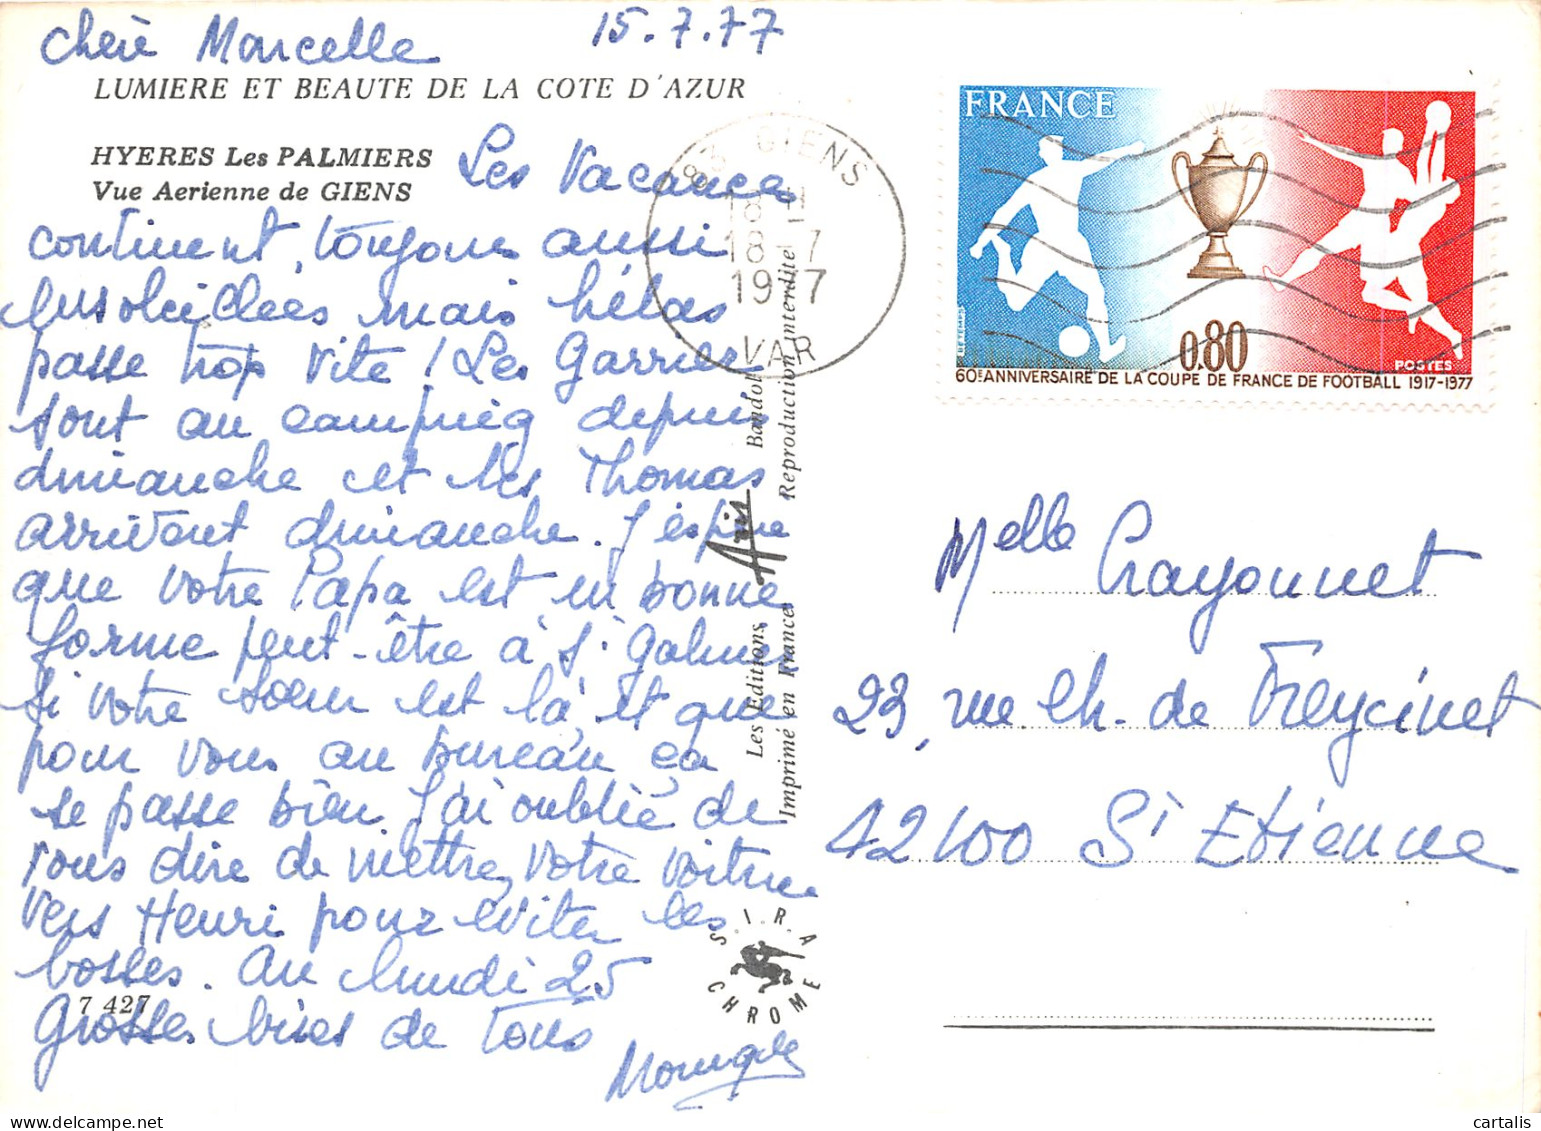 Chère Marcelle 15.7.77
LUMIERE ET BEAUTE DE LA COTE D'AZUR
HYERES Les PALMIERS
Vue Aerienne de GIENS
Les Vacances
continuent, toujours aussi
ensoleillées mais hélas
passe trop vite ! Les Garrier
sont au camping depuis
dimanche et les Thomas
arrivent dimanche. J'espère
que votre Papa est en bonne
forme peut-être à St Galmier
si votre soeur est là et que
pour vous au bureau ça
se passe bien. J'ai oublié de
vous dire de mettre votre voiture
vers Henri pour eviter les
bosses. Au lundi 25
Grosses bises de tous
7 427
83 GIENS
18 H
18-7
1977
VAR
Les Editions Aris Bandol
Imprimé en France Reproduction interdite
S.I.R.A
CHROME
FRANCE
0,80
POSTES
60E ANNIVERSAIRE DE LA COUPE DE FRANCE DE FOOTBALL 1917-1977
Melle Crayonnet
23, rue Ch. de Freycinet
42100 St Etienne
cartalis